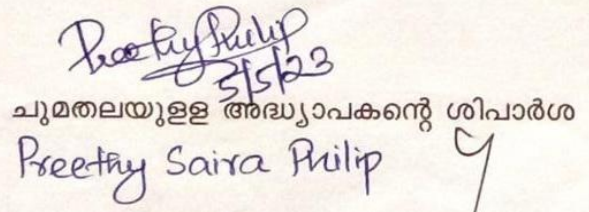 Preethy Philip
5/5/23
ചുമതലയുള്ള അദ്ധ്യാപകന്റെ ശിപാർശ
Preethy Saira Philip